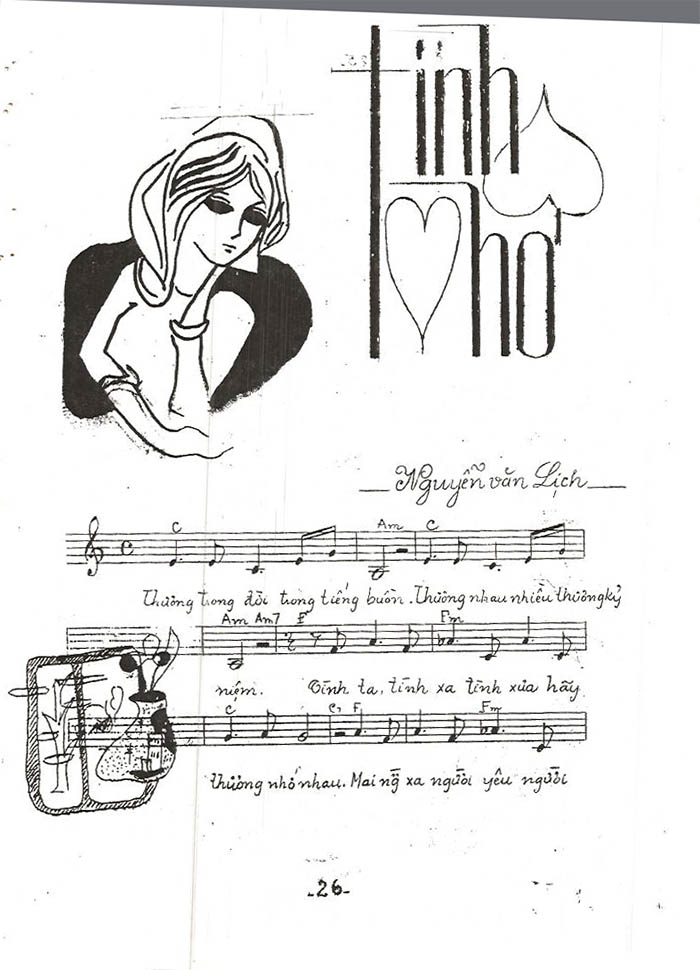 Tình
Nhớ
Nguyễn văn Lịch
C Am C
Thương trong đời trong tiếng buồn. Thương nhau nhiều thương kỷ
Am Am7 F Fm
niệm. Tình ta, tình xa tình xưa hãy
C C7 F Fm
thương nhớ nhau. Mai xa người yêu người
-26-